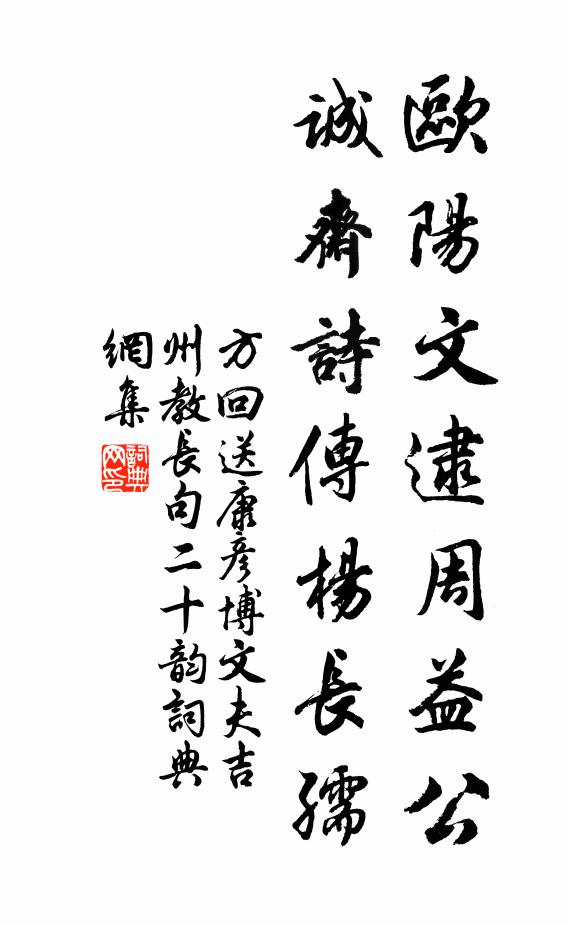 歐陽文逮周益公
誠齋詩傳楊長孺
方回送康彥博文夫吉
州教長句二十韵詞典
網集
詞典
网印